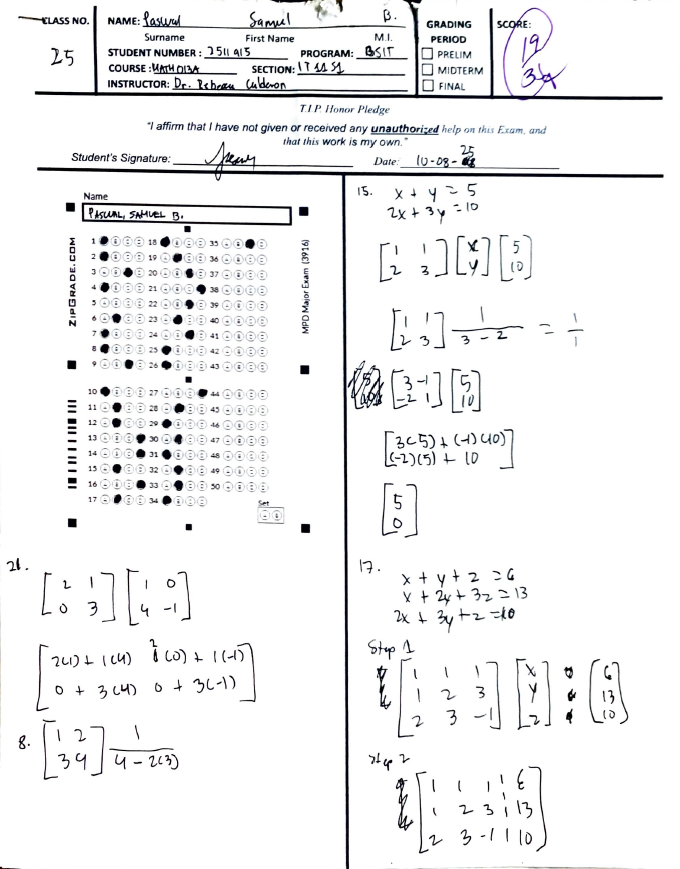 CLASS NO.
25
NAME: Pascual Samuel B.
Surname First Name M.I.
STUDENT NUMBER: 2511915 PROGRAM: BSIT
COURSE: MATH 013A SECTION: IT11S1
INSTRUCTOR: Dr. Calderon
GRADING
PERIOD
PRELIM
MIDTERM
FINAL
SCORE:
19
T.I.P. Honor Pledge
"I affirm that I have not given or received any unauthorized help on this Exam, and
that this work is my own."
Student's Signature:
Date: 10-08-25
Name
PASCUAL, SAMUEL B.
ZIPGRADE.COM
MPD Major Exam (3916)
1 18 35
2 19 36
3 20 37
4 21 38
5 22 39
6 23 40
7 24 41
8 25 42
9 26 43
10 27 44
11 28 45
12 29 46
13 30 47
14 31 48
15 32 49
16 33 50
17 34
Set
15. x + y = 5
2x + 3y = 10
[1 1] [x] [5]
[2 3] [y] [10]
[1 1] 1 = 1
[2 3] 3 - 2 1
[3 -1] [5]
[-2 1] [10]
[3(5) + (-1)(10)]
[(-2)(5) + 10]
[5]
[0]
21.
[2 1] [1 0]
[0 3] [4 -1]
[2(1) + 1(4) 2(0) + 1(-1)]
[0 + 3(4) 0 + 3(-1)]
8. [1 2] 1
[3 4] 4 - 2(3)
17.
x + y + z = 6
x + 2y + 3z = 13
2x + 3y + z = 10
Step 1
[1 1 1] [x] [6]
[1 2 3] [y] [13]
[2 3 -1] [z] [10]
Step 2
[1 1 1 | 6]
[1 2 3 | 13]
[2 3 -1 | 10]